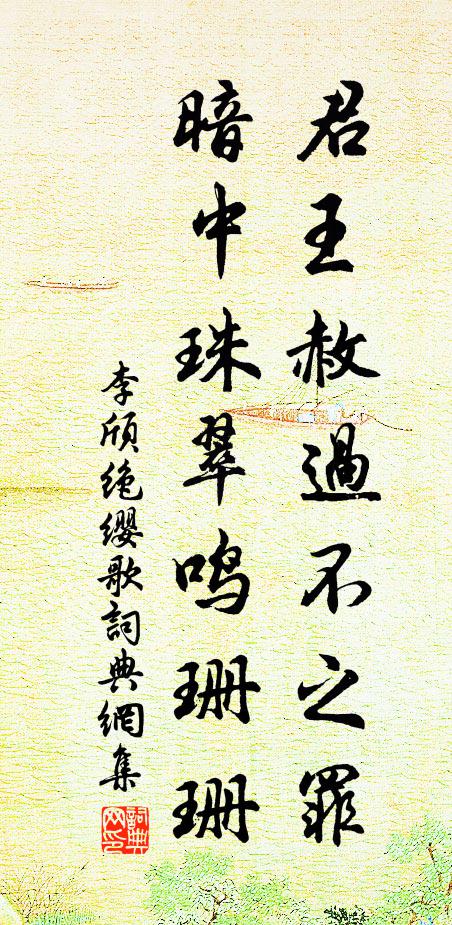 君王赦過不之罪
暗中珠翠鳴珊珊
李頎絶纓歌詞典網集
詞典網印